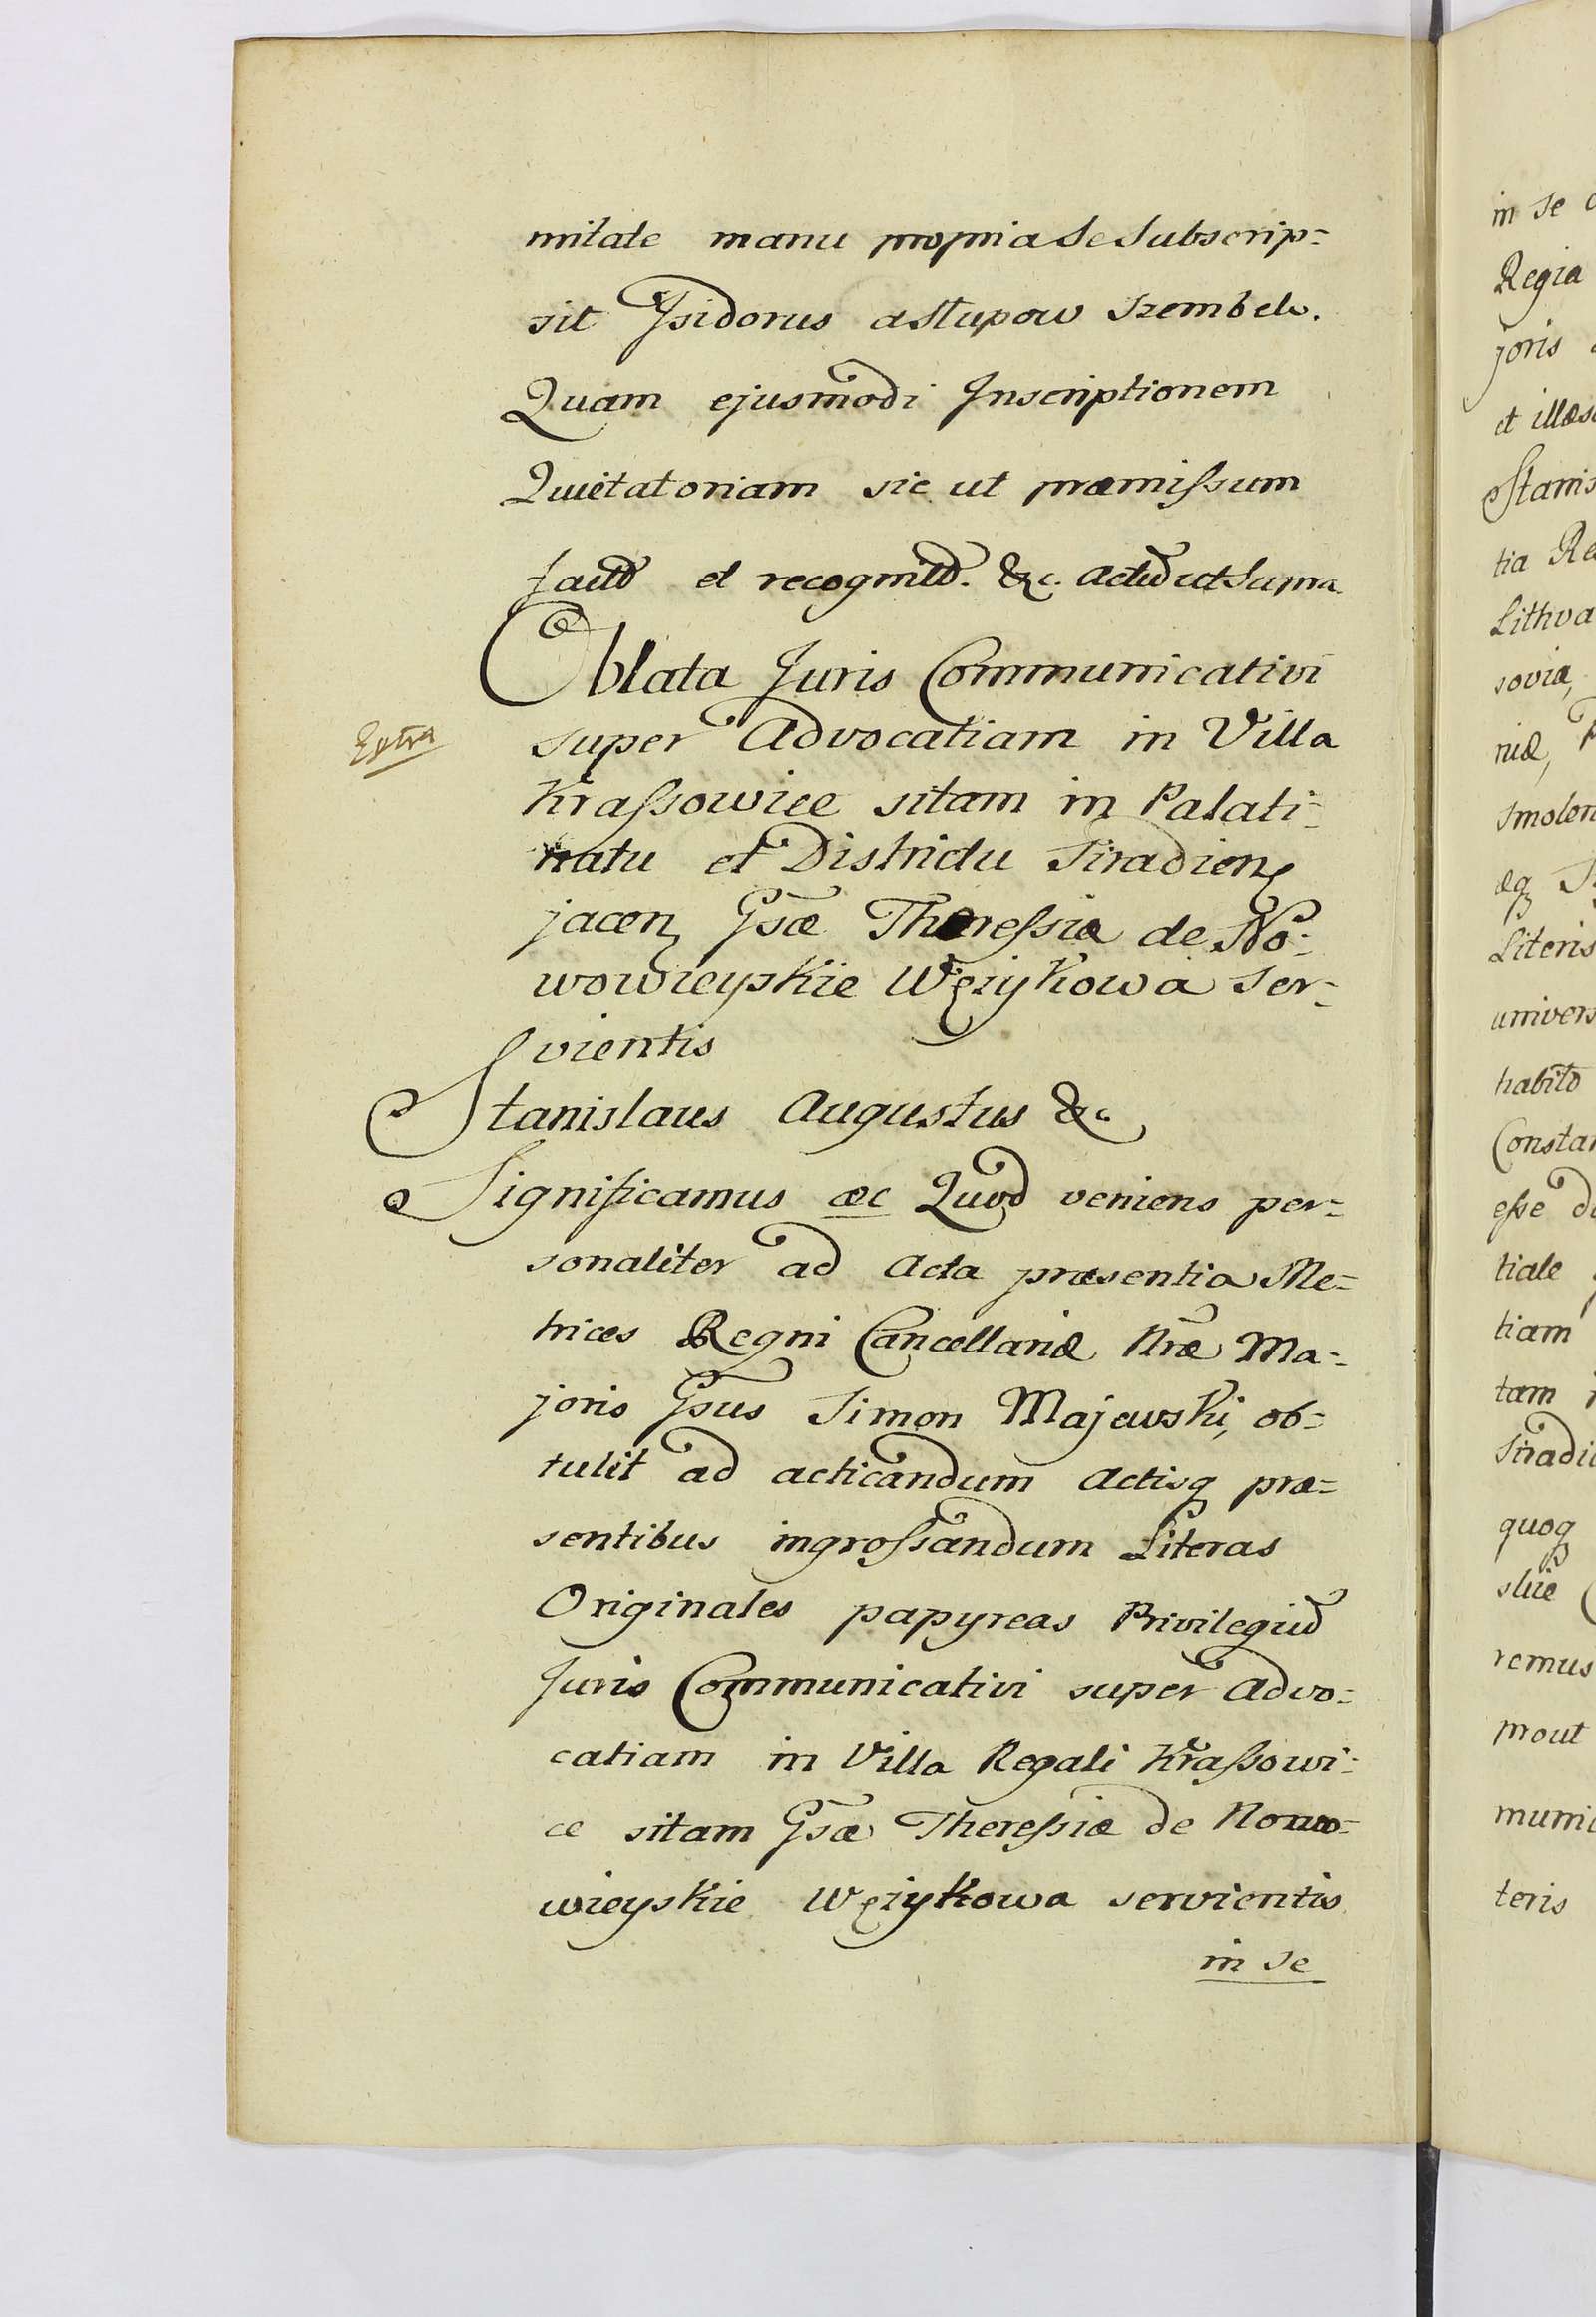 mitate manu propria Se Subscrip=
sit Jsidorus a Stupow Szembek.
Quam ejusmodi Inscriptionem
Quietatoriam sic ut præmissum
fact̃ et recognit̃. &c. Act̃ ut Supra
Oblata Juris Communicativi
super Advocatiam in Villa
Extra
Krassowice sitam in Palati=
natu et Districtu Siradien̄
jacen̄ Gsæ Theressiæ de No=
wowieyskie Wężykowa ser=
vientis
Stanislaus Augustus &c
Significamus &c Quod veniens per=
sonaliter ad Acta præsentia Me=
trices Regni Cancellariæ Nræ Ma=
joris Gsus Simon Majewski, ob=
tulit ad acticandum Actisq præ=
sentibus ingrossandum Literas
Originales papyreas Privilegiu͂
Juris Communicativi super Advo=
catiam in Villa Regali Krassowi=
ce sitam Gsæ Theressiæ de Nowo=
wieyskie Wężykowa servientis
in se
in se
Regia
joris
et illæs
Stanis
tia Re
Lithva
soviæ,
niæ,
Smolen
æq
Literis
univers
habito
Constan
esse
tiale
tiam
tam
Siradi
quoq
remus
prout
muni
teris